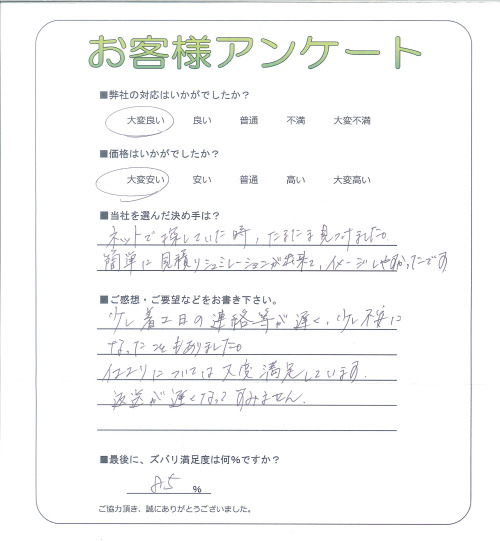 お客様アンケート
■弊社の対応はいかがでしたか？
大変良い 良い 普通 不満 大変不満
■価格はいかがでしたか？
大変安い 安い 普通 高い 大変高い
■当社を選んだ決め手は？
ネットで探していた時、たまたま見つけました。
簡単に見積りシュミレーションが出来て、イメージしやすかったです
■ご感想・ご要望などをお書き下さい。
少し着工日の連絡等が遅く、少し不安に
なったこともありました。
については大変満足しています.
返送が遅くなってすみません.
■最後に、ズバリ満足度は何%ですか？
85 %
ご協力頂き、誠にありがとうございました。